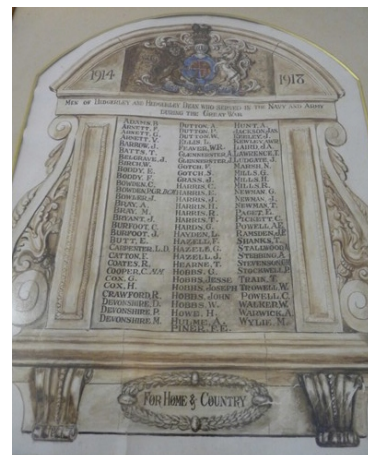 1914
1918
MEN OF AND DENE WHO SERVED IN THE NAVY AND ARMY
DURING THE GREAT WAR
ADAMS, H.
ARNETT, F.
ARNETT, G.
ARNETT, V.
BARROW, J.
BATTS, T.
BELGRAVE, J.
BIRCH, W.
BODDY, E.
BODDY, F.
BOWDEN, C.
BOWLER, J.
BRAY, A.
BRAY, M.
BRYANT, J.
BURFOOT, C.
BURFOOT, J.
BUTT, E.
CARPENTER, L.D
CATTON, F.
COATES, R.
COOPER, C.
COX, G.
COX, H.
CRAWFORD, R.
DEVONSHIRE, D.
DEVONSHIRE, P.
DEVONSHIRE, M.
DUTTON, A.
DUTTON, C.
DUTTON, W.
ELLIS, L.
FEAVER, W.R.
GLENNERSTER, A.
GLENNERSTER, J.
GOTCH, F.
GOTCH, S.
GRASS, J.
HARRIS, C.
HARRIS, E.
HARRIS, J.
HARRIS, H.
HARRIS, R.
HARRIS, T.
HARDS, G.
HAYDEN, L.
HAZELL, F.
HAZELL, G.
HAZELL, J.
HEARNE, T.
HOBBS, G.
HOBBS, JESSE
HOBBS, JOSEPH
HOBBS, JOHN
HOBBS, W.
HOWE, H.
HULME, A.
PINER, F.E.
HUNT, A.
JACKSON, JAS
KIRBY, J.
LAIRD, J.A.
LAWRENCE, F.
LUDGATE, J.
MARSH, N.
MILLS, G.
MILLS, H.
MILLS, R.
NEWMAN, G.
NEWMAN, J.
NEWMAN, T.
PAGET, E.
PICKETT, C.
POWELL, A.E.
RAMSDEN, J.E.
SHANKS, T.
STALLWOOD, J.
STEBBING, A.
STEVENSON, G.E.
STOCKWELL, P.
TRAIN, T.
TROWELL, W.
POWELL, C.
WALKER, W.
WARWICK, A.
WYLIE, M.
FOR HOME & COUNTRY